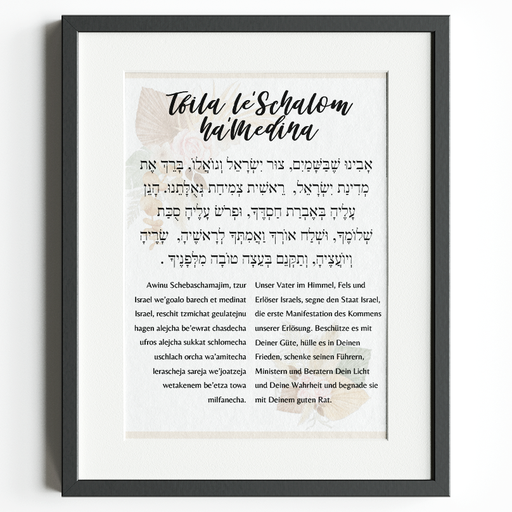 Tfila le'Schalom
ha'Medina
אָבִינוּ שֶׁבַּשָּׁמַיִם, צוּר יִשְׂרָאֵל וְגוֹאֲלוֹ, בָּרֵךְ אֶת
מְדִינַת יִשְׂרָאֵל, רֵאשִׁית צְמִיחַת גְּאֻלָּתֵנוּ. הָגֵן
עָלֶיהָ בְּאֶבְרַת חַסְדֶּךָ, וּפְרֹשׂ עָלֶיהָ סֻכַּת
שְׁלוֹמֶךָ, וּשְׁלַח אוֹרְךָ וַאֲמִתְּךָ לְרָאשֶׁיהָ, שָׂרֶיהָ
וְיוֹעֲצֶיהָ, וְתַקְּנֵם בְּעֵצָה טוֹבָה מִלְּפָנֶיךָ .
Awinu Schebaschamajim, tzur
Israel we'goalo barech et medinat
Israel, reschit tzmichat geulatejnu
hagen alejcha be'ewrat chasdecha
ufros alejcha sukkat schlomecha
uschlach orcha wa'amitecha
lerascheja sareja we'joatzeja
wetakenem be'etza towa
milfanecha.
Unser Vater im Himmel, Fels und
Erlöser Israels, segne den Staat Israel,
die erste Manifestation des Kommens
unserer Erlösung. Beschütze es mit
Deiner Güte, hülle es in Deinen
Frieden, schenke seinen Führern,
Ministern und Beratern Dein Licht
und Deine Wahrheit und begnade sie
mit Deinem guten Rat.